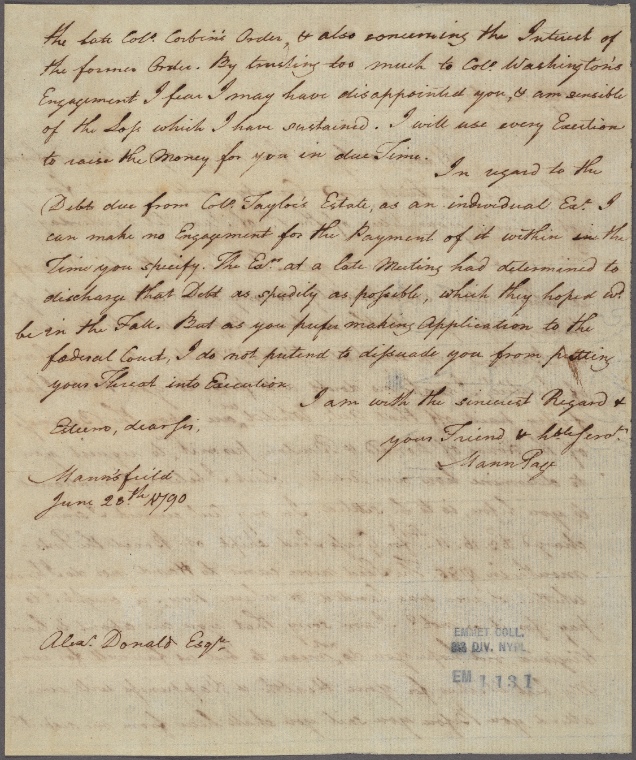 the late Colo. Corbin's Order, & also concerning the Interest of
the former Order. By trusting too much to Colo. Washington's
Engagement I fear I may have disappointed you, & am sensible
of the Loss which I have sustained. I will use every Exertion
to raise the Money for you in due Time.
In regard to the
Debt due from Colo. Taylor's Estate, as an individual Exr. I
can make no Engagement for the Payment of it within in the
Time you specify. The Exrs. at a late Meeting had determined to
discharge that Debt as speedily as possible, which they hoped wd.
be in the Fall. But as you prefer making Application to the
foederal Court, I do not pretend to dissuade you from putting
your Threat into Execution.
I am with the sincerest Regard &
Esteem, dear sir,
your Friend & hble Servt.
Mann Page
Mannsfield
June 28th. 1790
Alexr. Donald Esqre
EMMET COLL.
MS DIV. NYPL
EM 1131